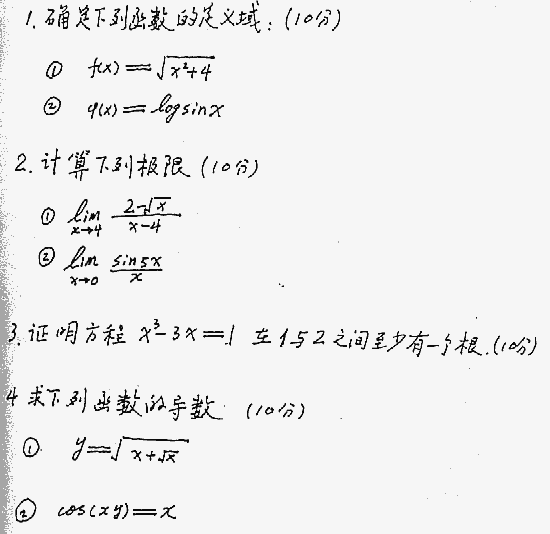 1. 确定下列函数的定义域: (10分)
① f(x) = √(x²+4)
② φ(x) = log sin x
2. 计算下列极限 (10分)
① lim_{x→4} (2-√x)/(x-4)
② lim_{x→0} (sin 5x)/x
3. 证明方程 x³-3x=1 在1与2之间至少有一个根. (10分)
4 求下列函数的导数 (10分)
① y = √(x+√x)
② cos(xy) = x